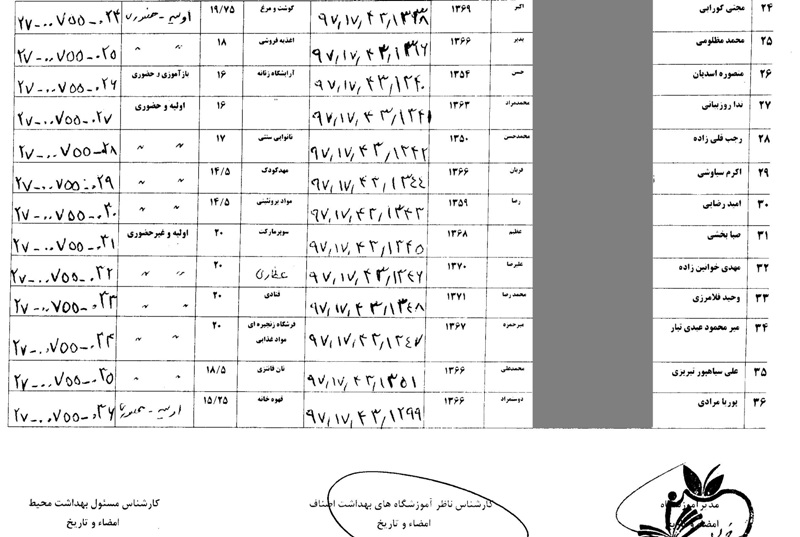 ۲۴ مجتبی گورابی اکبر ۱۳۶۹ ۹۷,۱۷,۴۳,۱۳۳۸ گوشت و مرغ ۱۹/۷۵ اولیه - حضوری ۲۷-۰۰۷۵۵-۰۲۴
۲۵ محمد مظلومی بدیر ۱۳۶۶ ۹۷,۱۷,۴۳,۱۳۲۶ اغذیه فروشی ۱۸ " " ۲۷-۰۰۷۵۵-۰۲۵
۲۶ منصوره اسدیان حسن ۱۳۵۴ ۹۷,۱۷,۴۳,۱۳۴۰ آرایشگاه زنانه ۱۶ بازآموزی و حضوری ۲۷-۰۰۷۵۵-۰۲۶
۲۷ ندا روزبیانی محمدمراد ۱۳۶۳ ۹۷,۱۷,۴۳,۱۳۴۱ ۱۶ اولیه و حضوری ۲۷-۰۰۷۵۵-۰۲۷
۲۸ رجب قلی زاده محمدحسن ۱۳۵۰ ۹۷,۱۷,۴۳,۱۳۴۲ نانوایی سنتی ۱۷ " " ۲۷-۰۰۷۵۵-۰۲۸
۲۹ اکرم سیاوشی قربان ۱۳۶۶ ۹۷,۱۷,۴۳,۱۳۴۴ مهدکودک ۱۴/۵ " " ۲۷-۰۰۷۵۵-۰۲۹
۳۰ امید رضایی رضا ۱۳۵۹ ۹۷,۱۷,۴۳,۱۳۴۳ مواد پروتئینی ۱۴/۵ " " ۲۷-۰۰۷۵۵-۰۳۰
۳۱ صبا بخشی عظیم ۱۳۶۸ ۹۷,۱۷,۴۳,۱۳۴۵ سوپرمارکت ۲۰ اولیه و غیرحضوری ۲۷-۰۰۷۵۵-۰۳۱
۳۲ مهدی خوابین زاده علیرضا ۱۳۷۰ ۹۷,۱۷,۴۳,۱۳۴۶ عطاری ۲۰ " " ۲۷-۰۰۷۵۵-۰۳۲
۳۳ وحید فلامرزی محمد رضا ۱۳۷۱ ۹۷,۱۷,۴۳,۱۳۴۸ قنادی ۲۰ " " ۲۷-۰۰۷۵۵-۰۳۳
۳۴ میر محمود عبدی تبار میرحمزه ۱۳۶۷ ۹۷,۱۷,۴۳,۱۳۴۷ فرشگاه زنجیره ای ۲۰ " " ۲۷-۰۰۷۵۵-۰۳۴
مواد غذایی
۳۵ علی سیاهپور تبریزی محمدعلی ۱۳۶۶ ۹۷,۱۷,۴۳,۱۳۵۱ نان فانتزی ۱۸/۵ " " ۲۷-۰۰۷۵۵-۰۳۵
۳۶ پوریا مرادی دوستمراد ۱۳۶۶ ۹۷,۱۷,۴۳,۱۲۹۹ قهوه خانه ۱۵/۲۵ اولیه - حضوری ۲۷-۰۰۷۵۵-۰۳۶
مدیر آموزشگاه کارشناس ناظر آموزشگاه های بهداشت اصناف کارشناس مسئول بهداشت محیط
امضاء و تاریخ امضاء و تاریخ امضاء و تاریخ